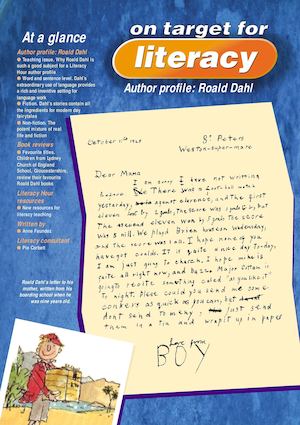 At a glance
Author profile: Roald Dahl
Teaching issue. Why Roald Dahl is
such a good subject for a Literacy
Hour author profile.
Word and sentence level. Dahl's
extraordinary use of language provides
a rich and inventive setting for
language work
Fiction. Dahl's stories contain all
the ingredients for modern day
fairytales
Non-fiction. The potent mixture of real
life and fiction
Book reviews
Favourite titles.
Children from Lydney
Church of England
School, Gloucestershire,
review their favourite
Roald Dahl books
Literacy Hour
resources
New resources for
literacy teaching
Written by
Anne Faundez
Literacy consultant
Pie Corbett
Roald Dahl's letter to his
mother, written from his
boarding school when he
was nine years old.
on target for
literacy
Author profile: Roald Dahl
St Peters
October 11th
Weston-super-mare
Dear Mama
I am sorry I have not writting
before. There was a foot-ball match
yesterday, against clarence, and the first
eleven lost by goals, the score was goals to but
the second eleven won by goals the score
was 5 nill. We played Brien huseen Wednesday,
and the score was 1 all. I hope none of you
have got coulds. It is quite a nice day to day,
I am just going to church. I hope mike is
quite all right now, and Major Cottam is
going to recite something caled "as you like it"
To night. Plese could you send me some
conkers as quick as you can, but
dont send to meny, just send
them in a tin and wrapit up in paper
Love from
BOY